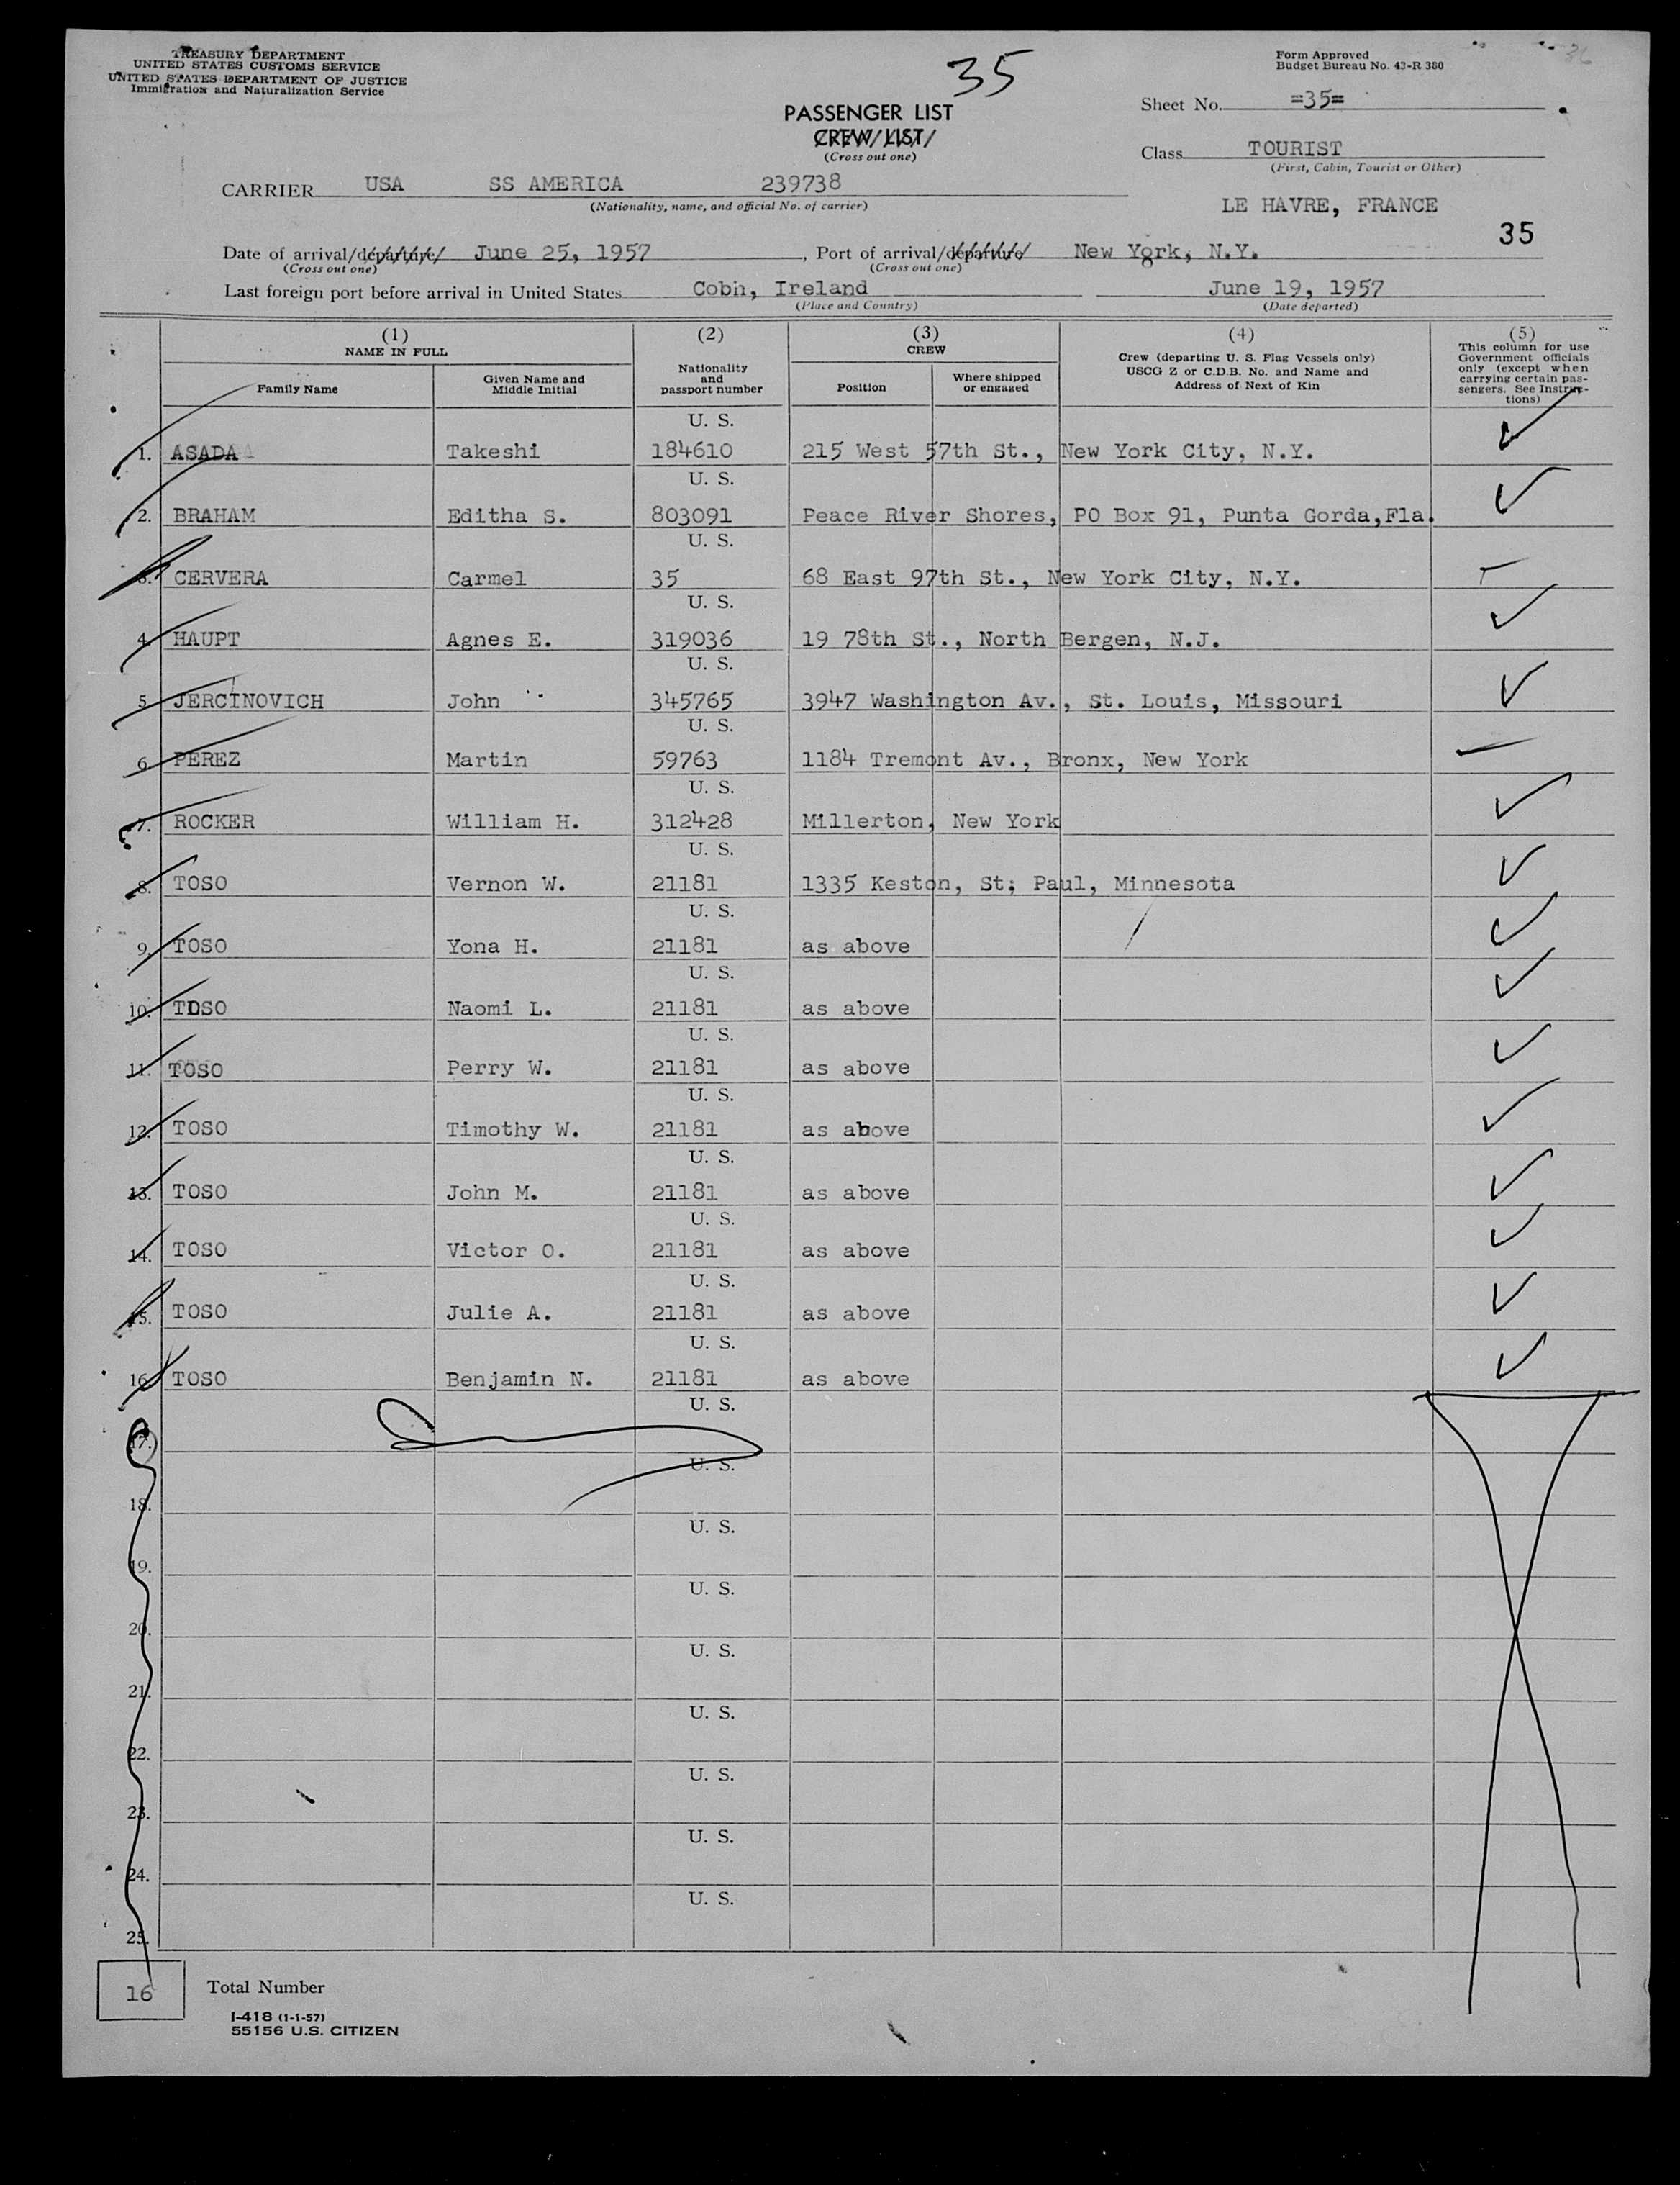 TREASURY DEPARTMENT
UNITED STATES CUSTOMS SERVICE
UNITED STATES DEPARTMENT OF JUSTICE
Immigration and Naturalization Service
35
Form Approved
Budget Bureau No. 43-R 380
PASSENGER LIST
CREW LIST
(Cross out one)
Sheet No. =35=
Class TOURIST
(First, Cabin, Tourist or Other)
CARRIER USA SS AMERICA 239738
(Nationality, name, and official No. of carrier)
LE HAVRE, FRANCE
35
Date of arrival/departure June 25, 1957, Port of arrival/departure New York, N.Y.
(Cross out one) (Cross out one)
Last foreign port before arrival in United States Cobh, Ireland June 19, 1957
(Place and Country) (Date departed)
(1) (2) (3) (4) (5)
NAME IN FULL
Family Name
Given Name and
Middle Initial
Nationality
and
passport number
CREW
Position
Where shipped
or engaged
Crew (departing U. S. Flag Vessels only)
USCG Z or C.D.B. No. and Name and
Address of Next of Kin
This column for use
Government officials
only (except when
carrying certain pas-
sengers. See Instruc-
tions)
U. S.
1. ASADA Takeshi 184610 215 West 57th St., New York City, N.Y.
U. S.
2. BRAHAM Editha S. 803091 Peace River Shores, PO Box 91, Punta Gorda,Fla.
U. S.
3. CERVERA Carmel 35 68 East 97th St., New York City, N.Y.
U. S.
4. HAUPT Agnes E. 319036 19 78th St., North Bergen, N.J.
U. S.
5. JERCINOVICH John 345765 3947 Washington Av., St. Louis, Missouri
U. S.
6. PEREZ Martin 59763 1184 Tremont Av., Bronx, New York
U. S.
7. ROCKER William H. 312428 Millerton, New York
U. S.
8. TOSO Vernon W. 21181 1335 Keston, St; Paul, Minnesota
U. S.
9. TOSO Yona H. 21181 as above
U. S.
10. TOSO Naomi L. 21181 as above
U. S.
11. TOSO Perry W. 21181 as above
U. S.
12. TOSO Timothy W. 21181 as above
U. S.
13. TOSO John M. 21181 as above
U. S.
14. TOSO Victor O. 21181 as above
U. S.
15. TOSO Julie A. 21181 as above
U. S.
16. TOSO Benjamin N. 21181 as above
U. S.
17.
U. S.
18.
U. S.
19.
U. S.
20.
U. S.
21.
U. S.
22.
U. S.
23.
U. S.
24.
U. S.
25.
16 Total Number
I-418 (1-1-57)
55156 U.S. CITIZEN